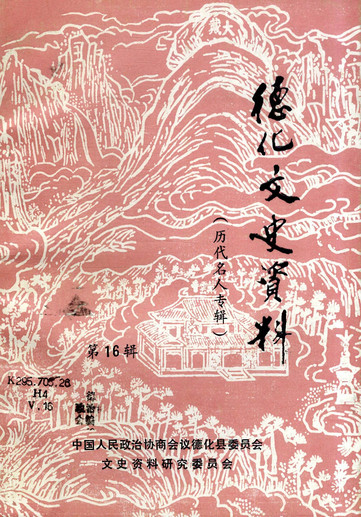 德化文史資料
（历代名人专辑）
第16辑
K295.705.26
H4
V.16
中国人民政治协商会议德化县委员会
文史资料研究委员会